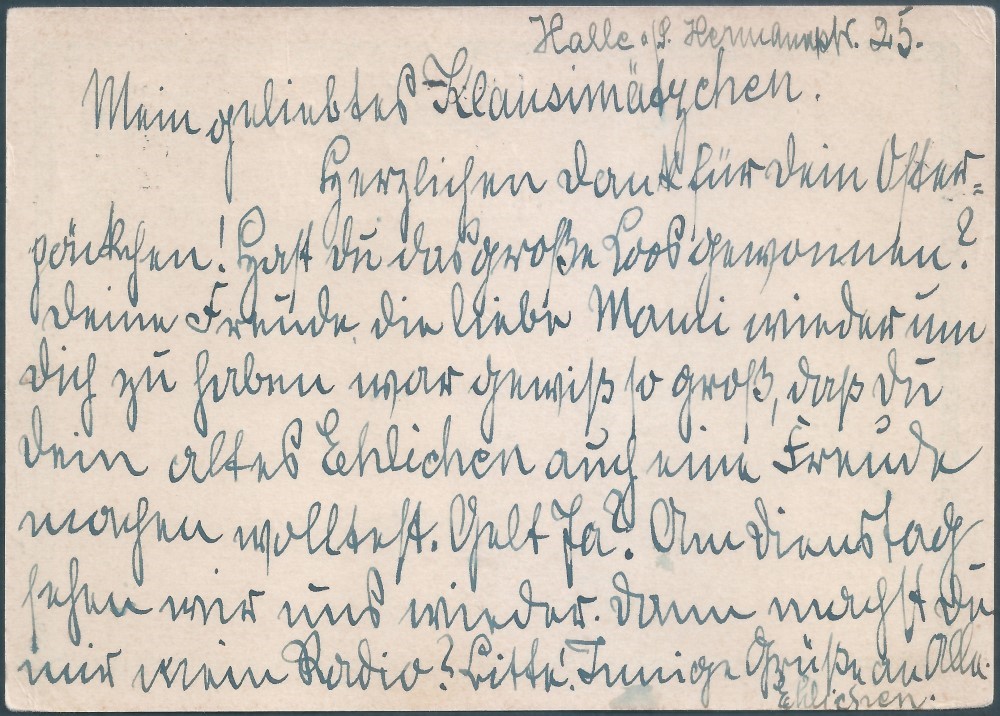 Halle a/S. Hermannstr. 25.
Mein geliebtes Klausimätzchen.
Herzlichen Dank für Dein Oster-
päckchen! Hast Du das große Loos gewonnen?
Deine Freude, die liebe Mauli wieder um
Dich zu haben war gewiß so groß, daß Du
Dein altes Ehlichen auch eine Freude
machen wolltest. Gelt Ja? Am Dienstag
sehen wir uns wieder. Dann machst Du
mir mein Radio? Bitte! Innige Grüße an Alle.
Ehlichen.